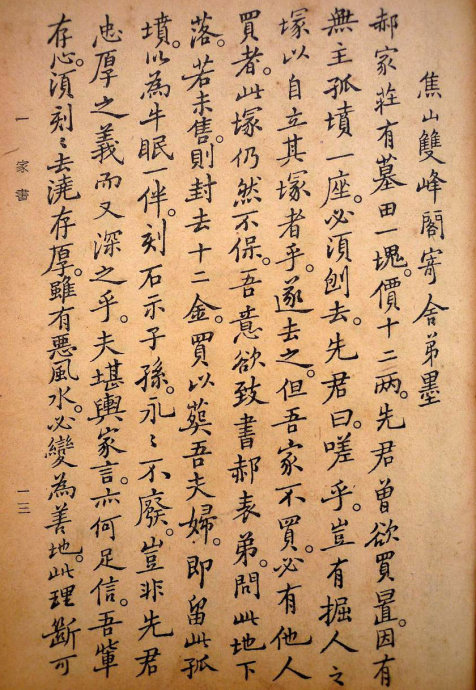 焦山雙峰閣寄舍弟墨
郝家莊有墓田一塊。價十二兩。先君曾欲買置。因有
無主孤墳一座。必須刨去。先君曰。嗟乎。豈有掘人之
塚以自立其塚者乎。遂去之。但吾家不買。必有他人
買者。此塚仍然不保。吾意欲致書郝表弟。問此地下
落。若未售。則封去十二金。買以葬吾夫婦。即留此孤
墳。以為牛眠一伴。刻石示子孫。永〻不廢。豈非先君
忠厚之義而又深之乎。夫堪輿家言。亦何足信。吾輩
存心。須刻〻去澆存厚。雖有惡風水。必變為善地。此理斷可
一 家書 一三